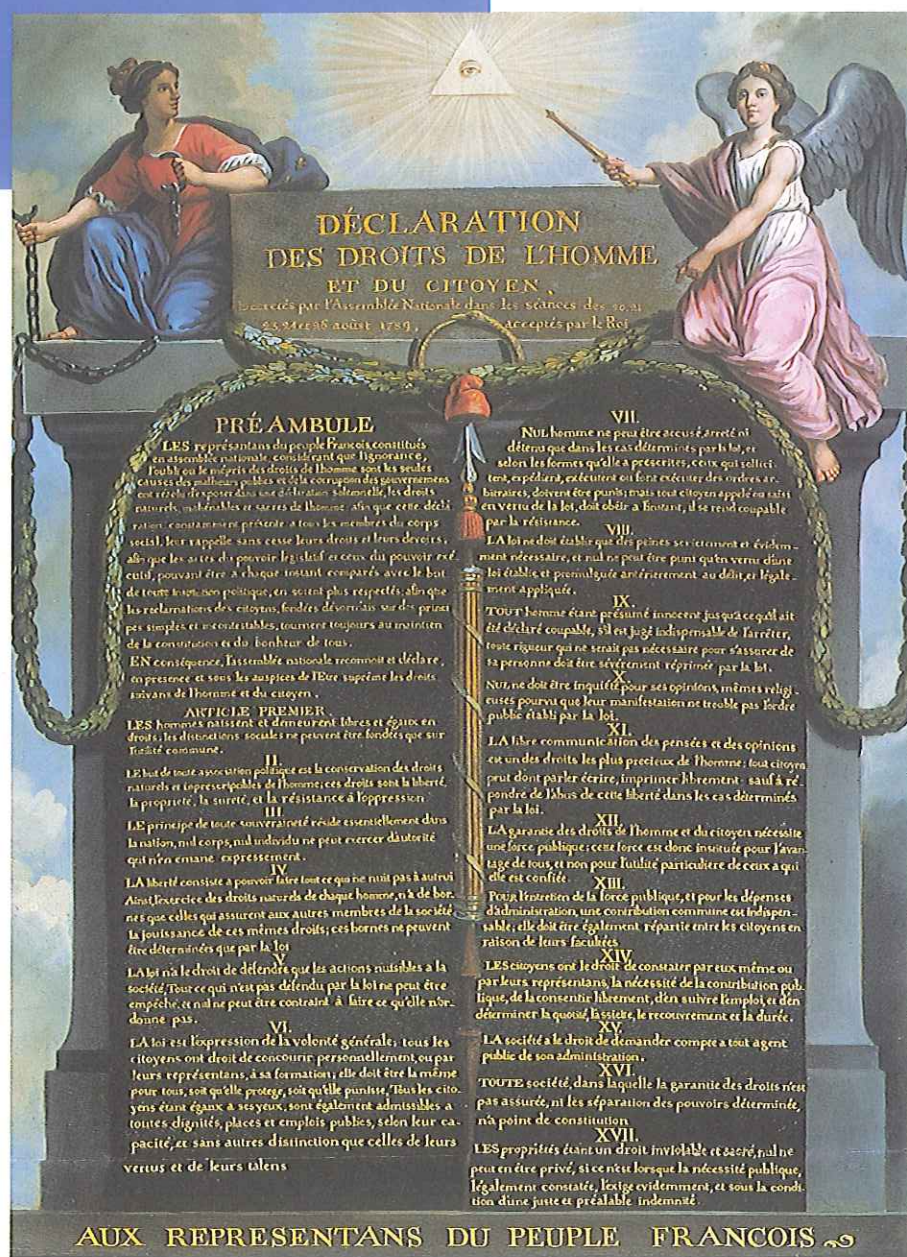 DÉCLARATION
DES DROITS DE L'HOMME
ET DU CITOYEN,
Decretés par l'Assemblée Nationale dans les séances des 20, 21
23, 24 et 26 août 1789, acceptés par le Roi
PRÉAMBULE
LES représantans du peuple Francois, constitués
en assemblée nationale, considérant que l'ignorance,
l'oubli ou le mépris des droits de l'homme sont les seules
causes des malheurs publics et de la corruption des gouvernemens
ont résolu d'exposer dans une déclaration solemnelle, les droits
naturels, inaliénables et sacrés de l'homme: afin que cette décla
ration, constamment présente a tous les membres du corps
social, leur rappelle sans cesse leurs droits et leurs devoirs,
afin que les actes du pouvoir législatif et ceux du pouvoir exé
cutif, pouvant être a chaque instant comparés avec le but
de toute institution politique, en soient plus respectés; afin que
les reclamations des citoyens, fondées désormais sur des princi
pes simples et incontestables, tournent toujours au maintien
de la constitution et du bonheur de tous.
EN conséquence, l'assemblée nationale reconnoit et déclare,
en presence et sous les auspices de l'Etre suprême les droits
suivans de l'homme et du citoyen.
ARTICLE PREMIER.
LES hommes naissent et demeurent libres et égaux en
droits, les distinctions sociales ne peuvent être fondées que sur
l'utilité commune.
II.
LE but de toute association politique est la conservation des droits
naturels et inprescriptibles de l'homme; ces droits sont la liberté,
la propriété, la sureté, et la résistance à l'oppression
III.
LE principe de toute souveraineté réside essentiellement dans
la nation, nul corps, nul individu ne peut exercer d'autorité
qui n'en emane expressement.
IV.
LA liberté consiste a pouvoir faire tout ce qui ne nuit pas à autrui
Ainsi, l'exercice des droits naturels de chaque homme, n'a de bor-
nes que celles qui assurent aux autres membres de la société
la jouissance de ces mêmes droits; ces bornes ne peuvent
être déterminées que par la loi
V.
LA loi n'a le droit de défendre que les actions nuisibles a la
société, Tout ce qui n'est pas défendu par la loi ne peut être
empéché, et nul ne peut être contraint à faire ce qu'elle n'or-
donne pas.
VI.
LA loi est l'expression de la volonté générale; tous les
citoyens ont droit de concourir personnellement, ou par
leurs représentans, à sa formation; elle doit être la même
pour tous, soit qu'elle protege, soit qu'elle punisse, Tous les cito-
yens étant égaux a ses yeux, sont également admissibles a
toutes dignités, places et emplois publics, selon leur ca-
pacité, et sans autres distinction que celles de leurs
vertus et de leurs talens
VII.
NUL homme ne peut être accusé, arreté ni
détenu que dans les cas déterminés par la loi, et
selon les formes qu'elle a prescrites, ceux qui sollici-
tent, expédient, exécutent ou font exécuter des ordres ar-
bitraires, doivent être punis; mais tout citoyen appelé ou saisi
en vertu de la loi, doit obéir a l'instant, il se rend coupable
par la résistance.
VIII.
LA loi ne doit établir que des peines strictement et évidem-
ment nécessaire, et nul ne peut être puni qu'en vertu d'une
loi établie et promulguée antérierement au délit, et légale-
ment appliquée.
IX.
TOUT homme étant présumé innocent jusqu'a ce qu'il ait
été déclaré coupable, s'il est jugé indispensable de l'arrêter,
toute rigueur qui ne serait pas nécessaire pour s'assurer de
sa personne doit être sévérement réprimée par la loi.
X.
NUL ne doit être inquiété pour ses opinions, mêmes religi-
euses pourvu que leur manifestation ne trouble pas l'ordre
public établi par la loi.
XI.
LA libre communication des pensées et des opinions
est un des droits les plus precieux de l'homme; tout citoyen
peut dont parler écrire, imprimer librement: sauf à ré-
pondre de l'abus de cette liberté dans les cas déterminés
par la loi.
XII.
LA garantie des droits de l'homme et du citoyen nécessite
une force publique; cette force est donc instituée pour l'avan-
tage de tous, et non pour l'utilité particuliere de ceux a qui
elle est confiée.
XIII.
POUR l'entretien de la force publique, et pour les dépenses
d'administration, une contribution commune est indispen-
sable; elle doit être également répartie entre les citoyens en
raison de leurs facultées
XIV.
LES citoyens ont le droit de constater par eux même ou
par leurs représentans, la nécessité de la contribution pub-
lique, de la consentir librement, d'en suivre l'emploi, et d'en
déterminer la quotité, l'assiette, le recouvrement et la durée.
XV.
LA société a le droit de demander compte a tout agent
public de son administration.
XVI.
TOUTE société, dans laquelle la garantie des droits n'est
pas assurée, ni les séparation des pouvoirs déterminée,
n'a point de constitution
XVII.
LES propriétés étant un droit inviolable et sacré, nul ne
peut en être privé, si ce n'est lorsque la nécessité publique,
légalement constatée, l'exige evidemment, et sous la condi-
tion d'une juste et préalable indemnité.
AUX REPRESENTANS DU PEUPLE FRANCOIS